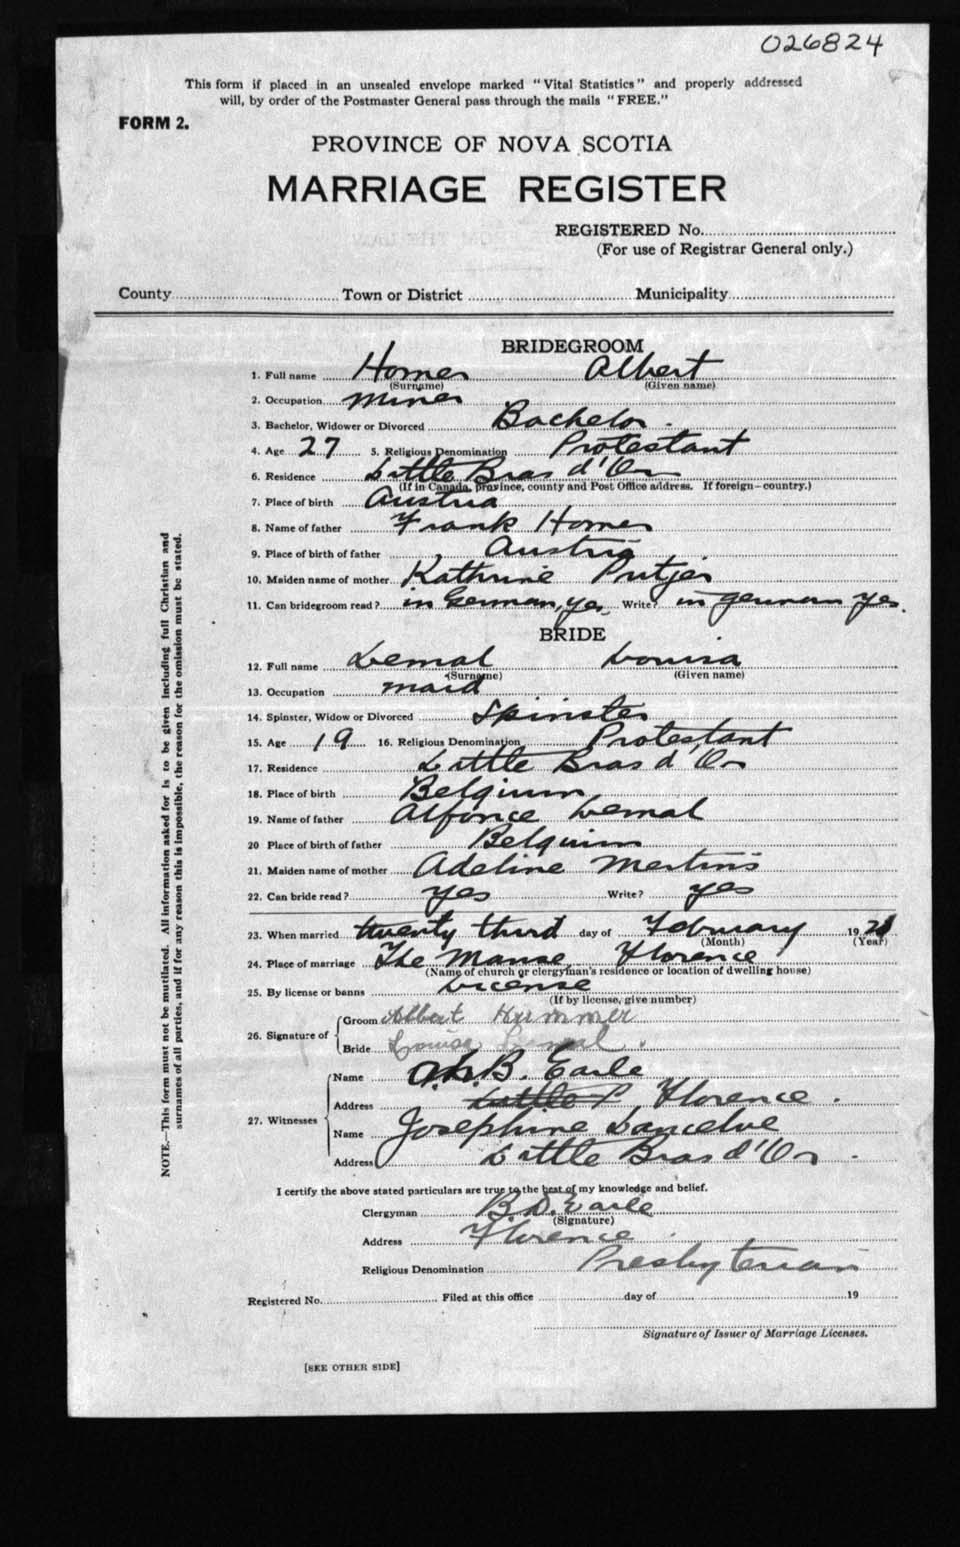 026824
This form if placed in an unsealed envelope marked "Vital Statistics" and properly addressed
will, by order of the Postmaster General pass through the mails "FREE."
FORM 2.
PROVINCE OF NOVA SCOTIA
MARRIAGE REGISTER
REGISTERED No.
(For use of Registrar General only.)
County Town or District Municipality
BRIDEGROOM
1. Full name Homer Albert
(Surname) (Given name)
2. Occupation miner
3. Bachelor, Widower or Divorced Bachelor.
4. Age 27 5. Religious Denomination Protestant
6. Residence Little Bras d'Or
(If in Canada, province, county and Post Office address. If foreign—country.)
7. Place of birth Austria
8. Name of father Frank Homer
9. Place of birth of father Austria
10. Maiden name of mother Kathrine
11. Can bridegroom read? in German, yes Write? in german yes.
BRIDE
12. Full name Lemal Louisa
(Surname) (Given name)
13. Occupation maid
14. Spinster, Widow or Divorced Spinster
15. Age 19 16. Religious Denomination Protestant
17. Residence Little Bras d'Or
18. Place of birth Belgium
19. Name of father Alfonce Lemal
20 Place of birth of father Belgium
21. Maiden name of mother Adeline Mertins
22. Can bride read? yes Write? yes
23. When married twenty third day of February 19
(Month) (Year)
24. Place of marriage The Manse, Florence
(Name of church or clergyman's residence or location of dwelling house)
25. By license or banns License
(If by license, give number)
26. Signature of Groom Albert Hummer
Bride Louisa Lemal.
27. Witnesses Name B. Earle
Address Little Florence.
Name Josephine
Address Little Bras d'Or.
I certify the above stated particulars are true to the best of my knowledge and belief.
Clergyman B.D. Earle
(Signature)
Address Florence.
Religious Denomination Presbyterian
Registered No. Filed at this office day of 19
Signature of Issuer of Marriage Licenses.
[SEE OTHER SIDE]
NOTE.—This form must not be mutilated. All information asked for is to be given including full Christian and
surnames of all parties, and if for any reason this is impossible, the reason for the omission must be stated.